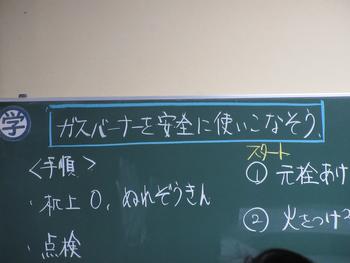 学
ガスバーナーを安全に使いこなそう。
<手順>
・机上0、ぬれぞうきん
・点検
スタート
① 元栓あけ
② 火をつけ